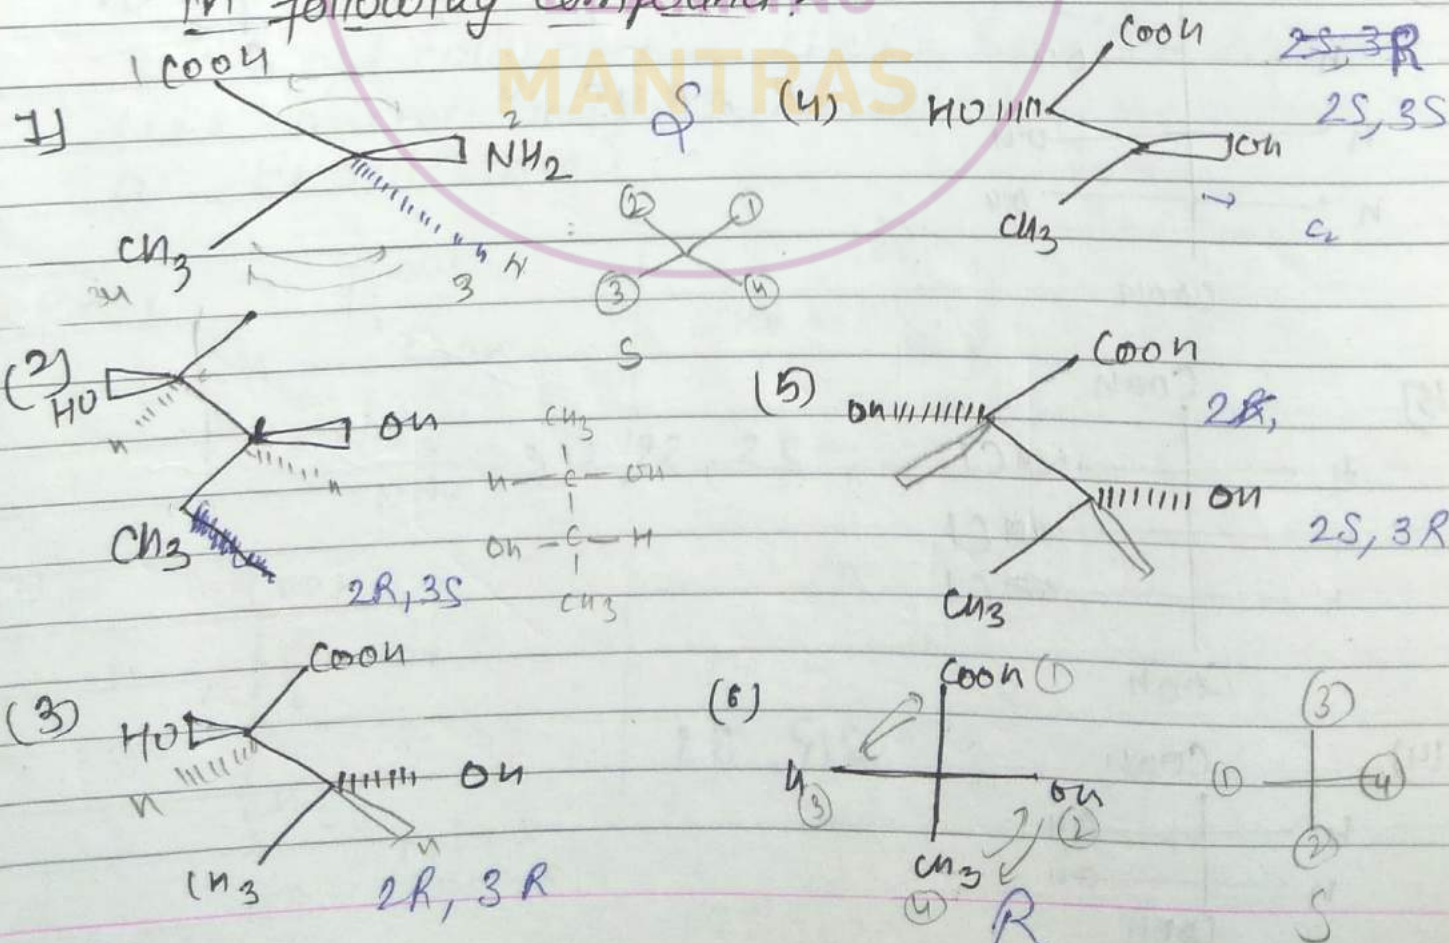 In following compound?
MANTRAS
1) 1 COOH
2 NH2
CH3
3 H
S
② ①
③ ④
S
(2) HO
H
OH
H
CH3
2R, 3S
CH3
H-C-OH
OH-C-H
CH3
(3) HO
COOH
H
OH
H
CH3
2R, 3R
(4) HO
COOH
OH
CH3
2S, 3R
2S, 3S
(5) OH
COOH
OH
CH3
2R,
2S, 3R
(6) COOH ①
H ③
OH ②
CH3 ④
R
③
① ④
②
S